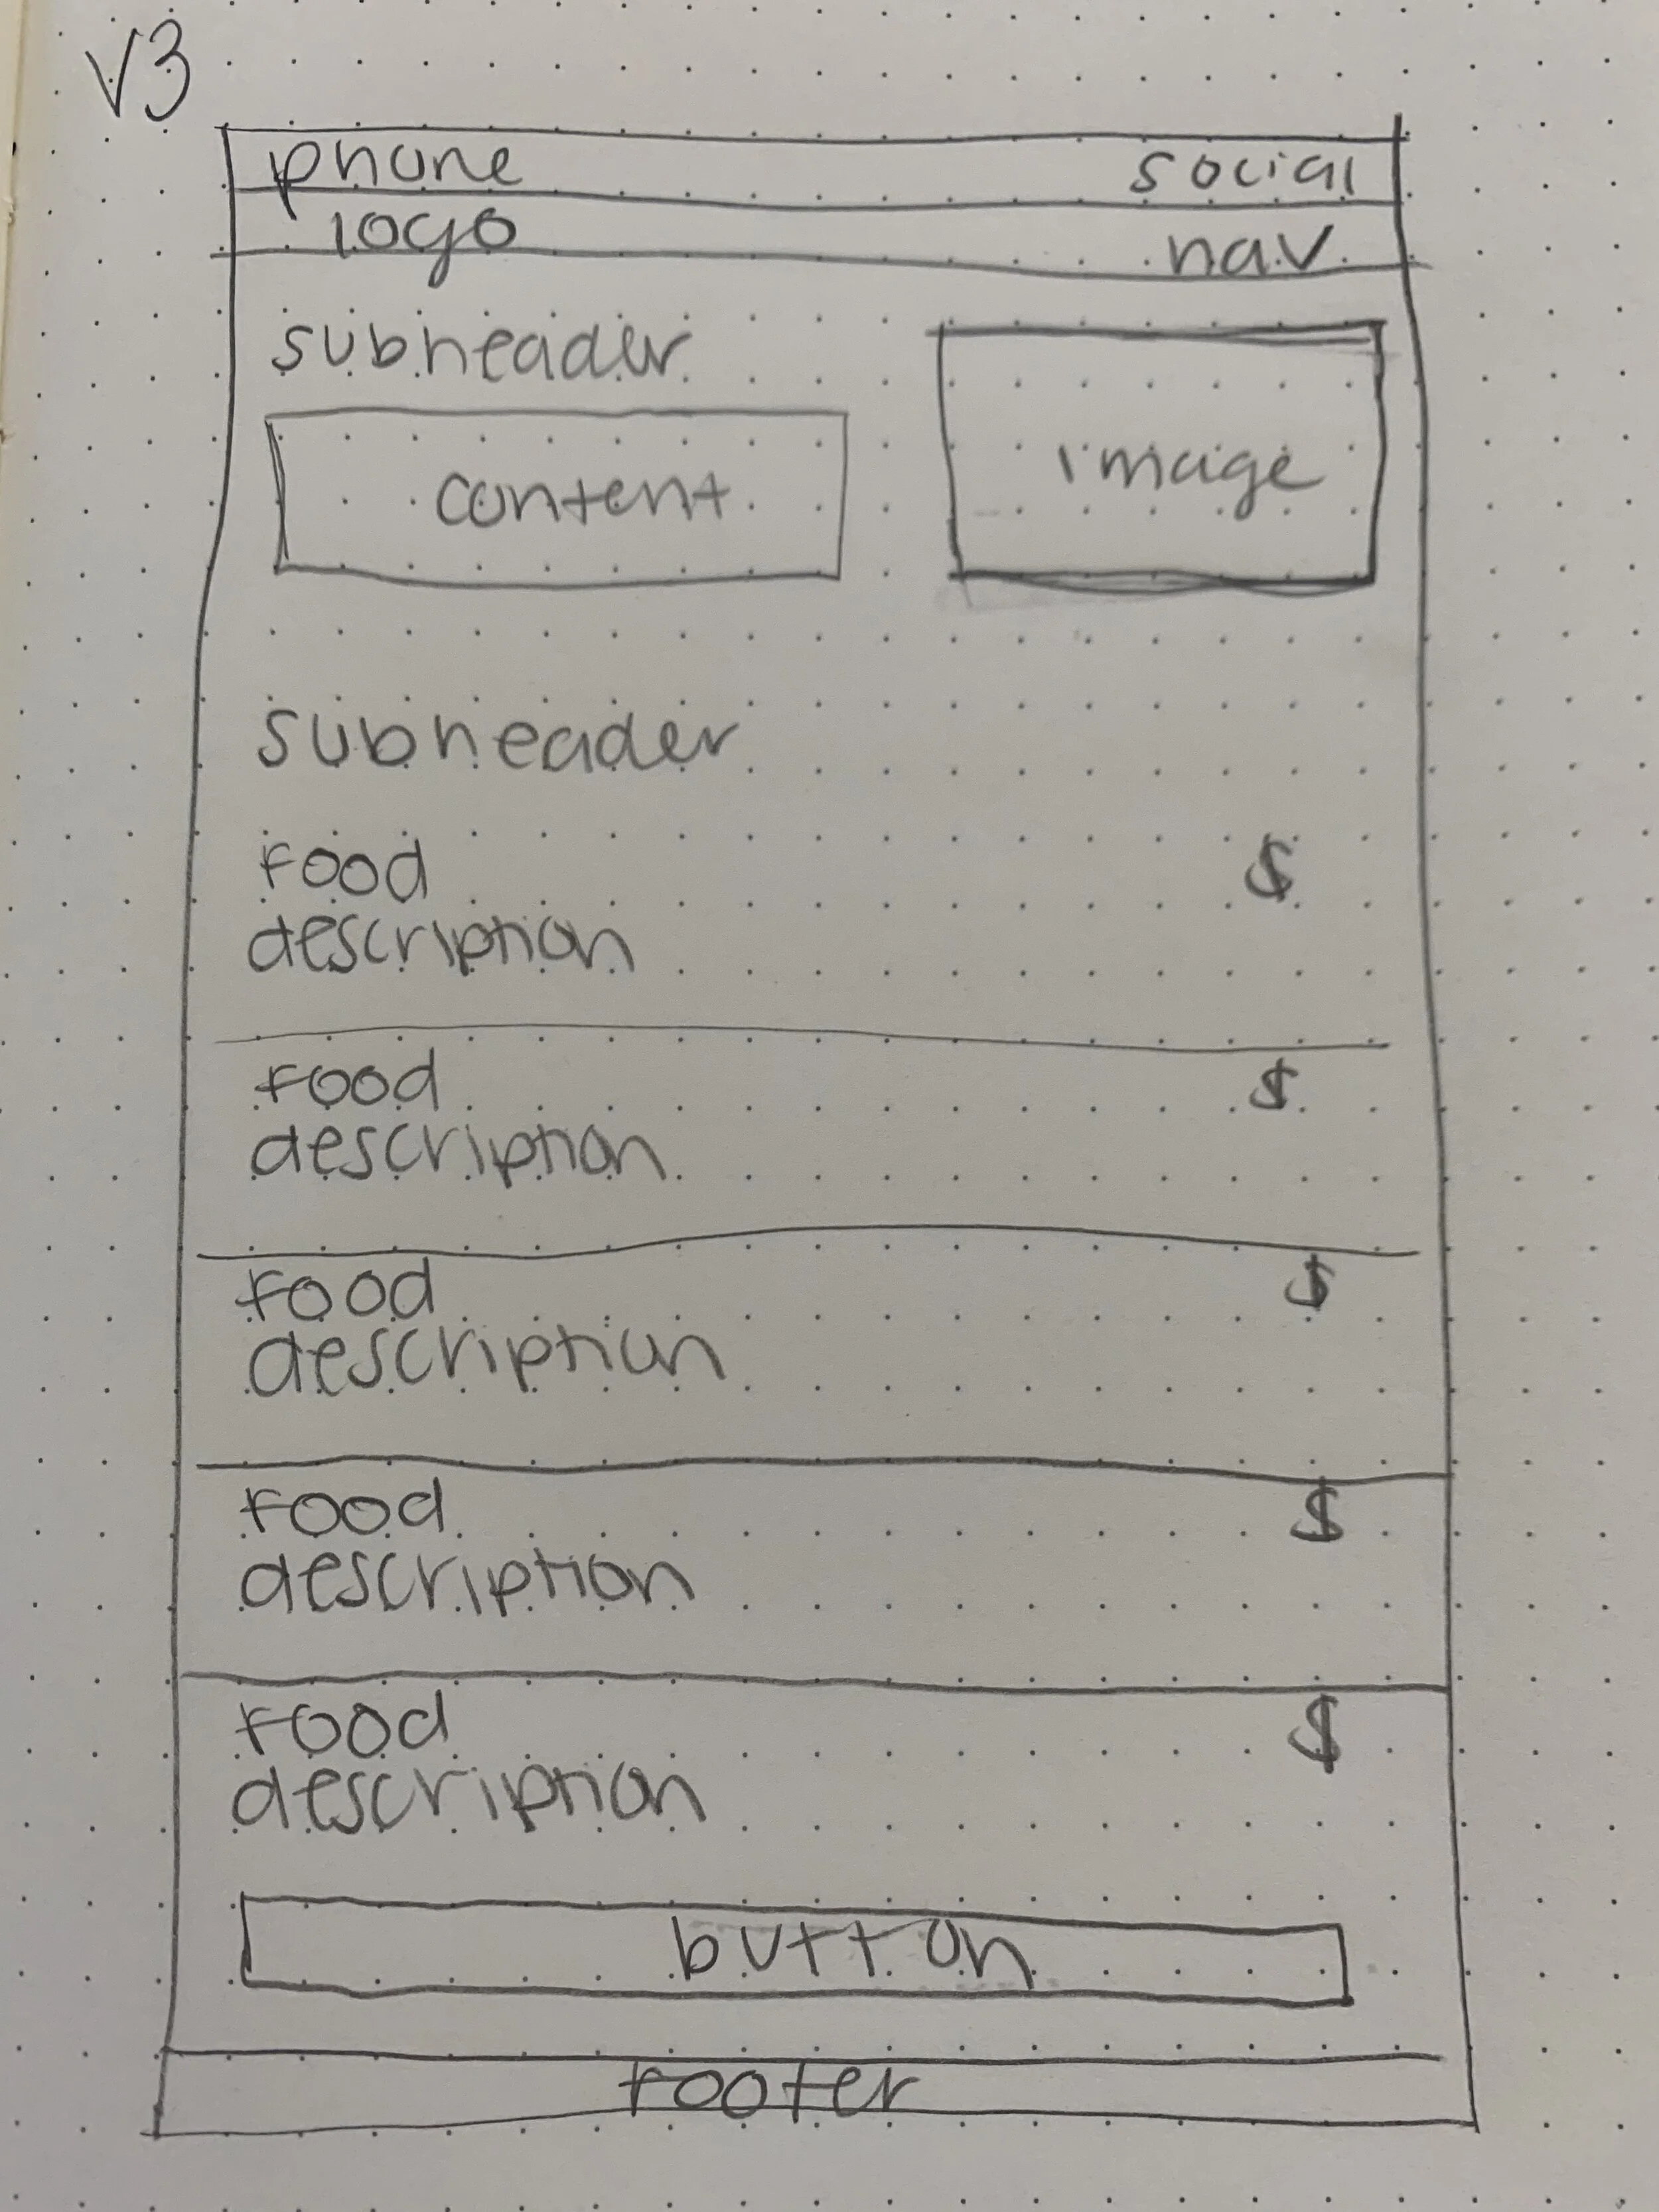 V3
phone social
logo nav
subheader
image
content
subheader
food $
description
food $
description
food $
description
food $
description
food $
description
button
footer